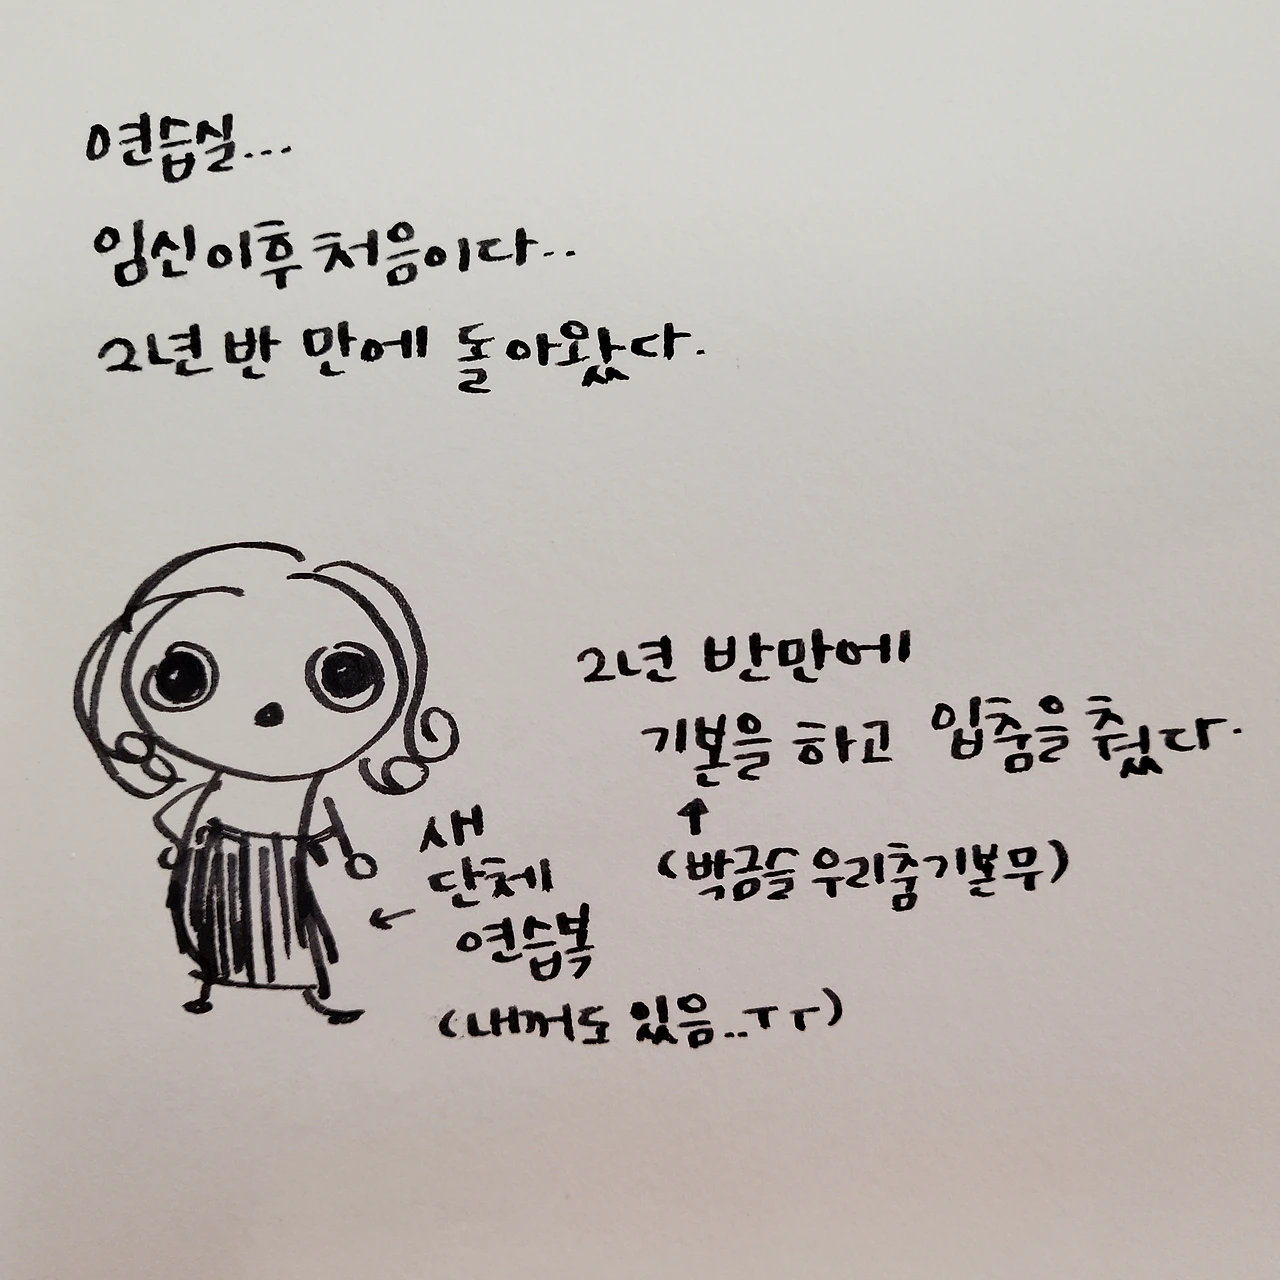 연습실...
임신 이후 처음이다..
2년 반 만에 돌아왔다.
2년 반만에
기본을 하고 입춤을 췄다.
↑
(박금슬 우리춤기본무)
새
단체
← 연습복
(내꺼도 있음..ㅜㅜ)